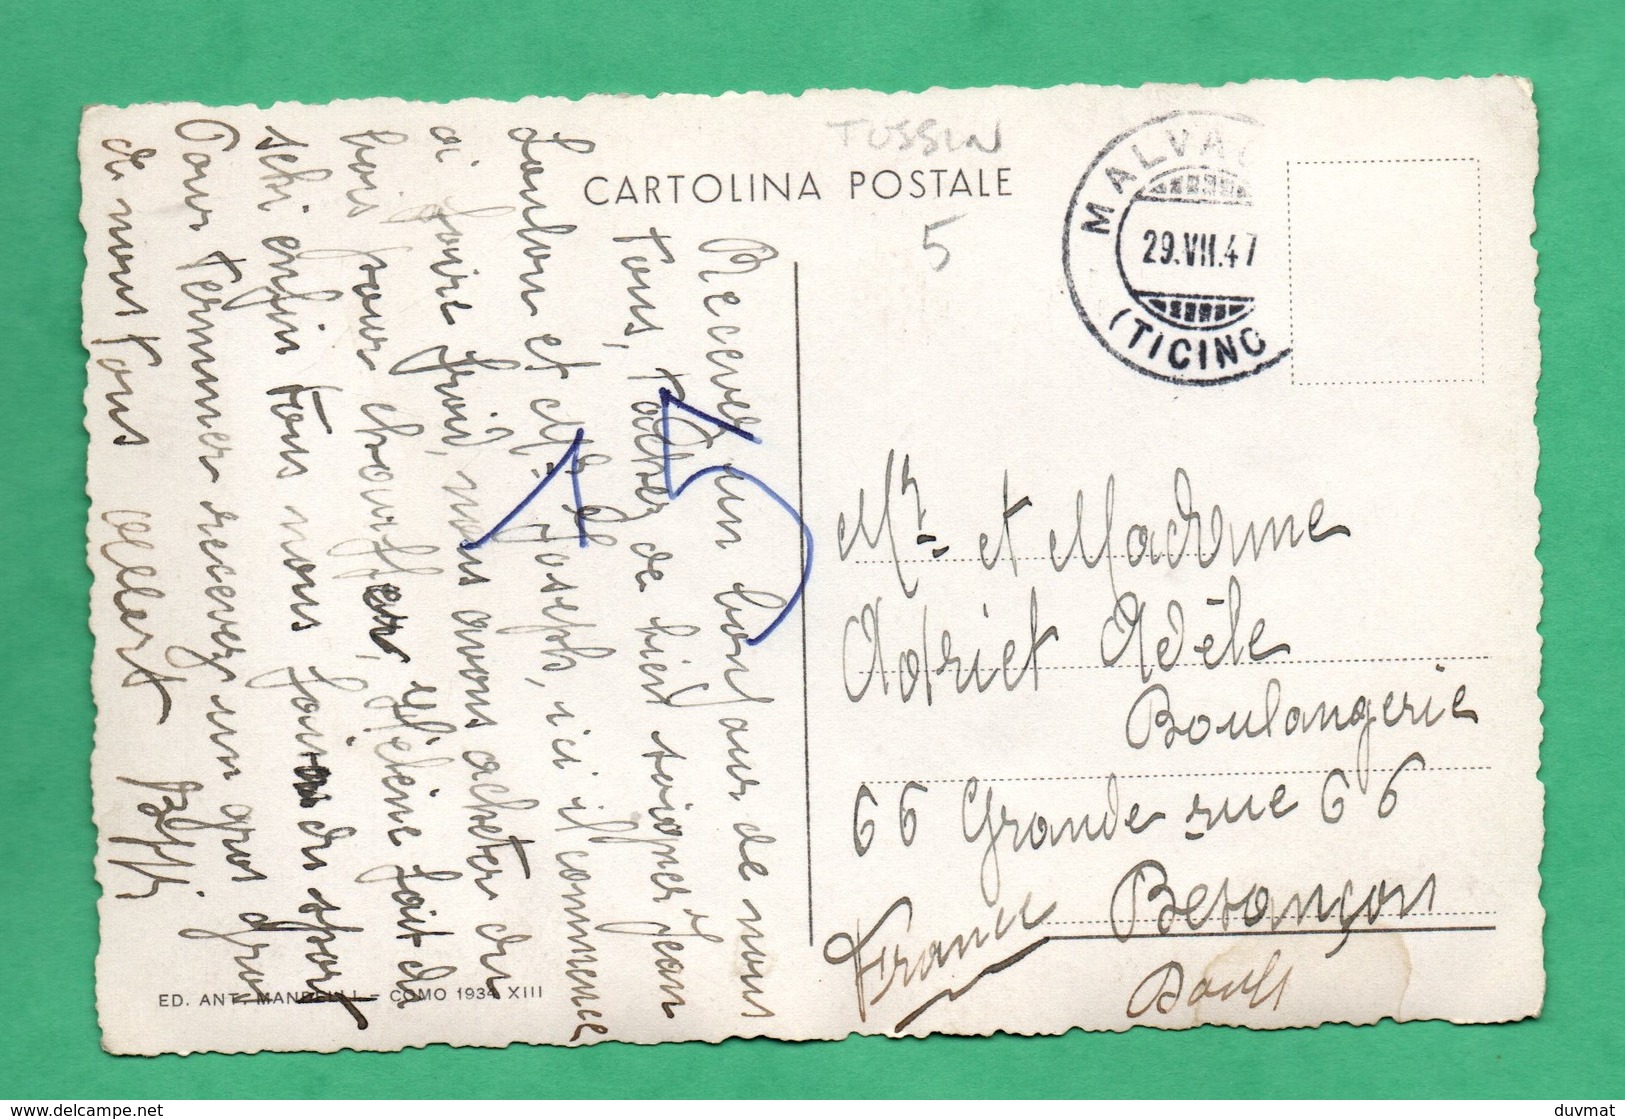 TUSSIN
CARTOLINA POSTALE
5
MALVA
29.VII.47
(TICINO
15
Recevez un bonjour de nous
tous, tacher de bien soigner Jean
Loulou et Mr Joseph, ici il commence
a faire froid, nous avons acheter du
bois pour chauffer, Hélène fait du
seki enfin tous nous faison du sport
Pour terminer recevez un gros
de nous tous Albert
Mr. et Madame
Adriet Adèle
Boulangerie
66 Grande rue 66
Besançon
France
Doubs
ED. ANT. MANDELLI - COMO 1934 XIII
http://www.delcampe.net
duvmat